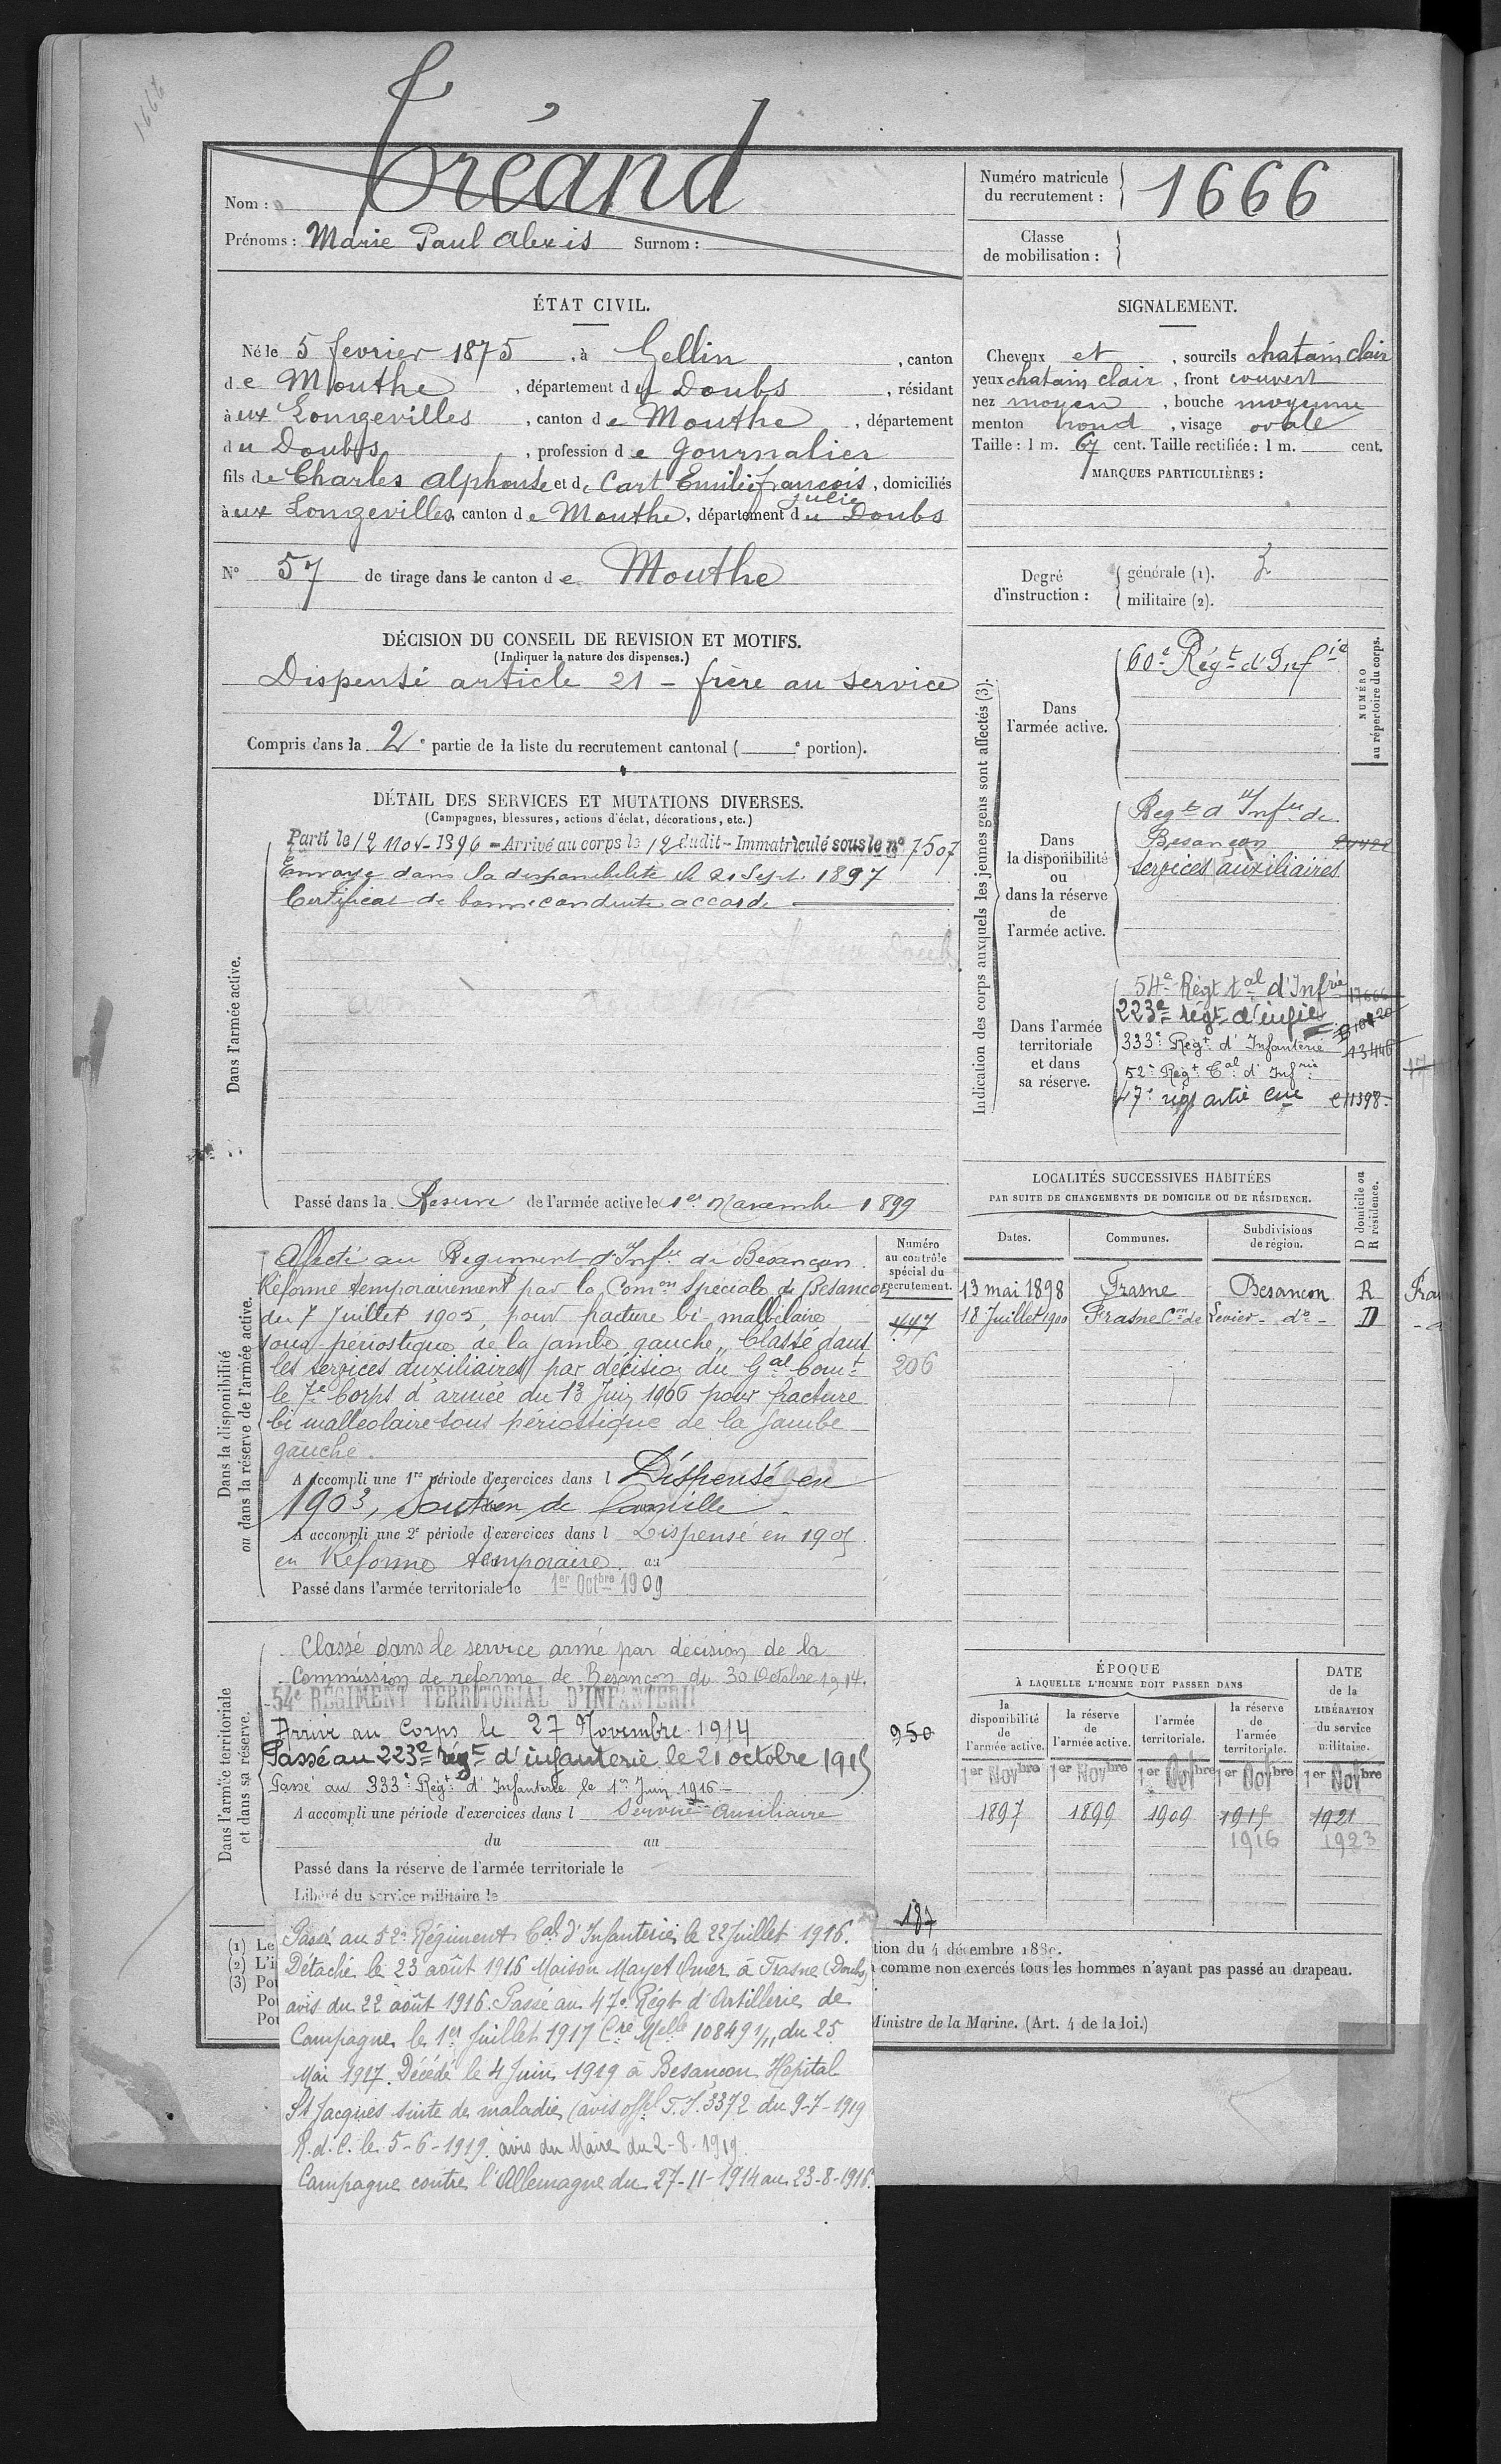 1666
Nom : Tréand
Prénoms : Marie Paul Alexis Surnom :
Numéro matricule
du recrutement : 1666
Classe
de mobilisation :
ÉTAT CIVIL.
Né le 5 fevrier 1875, à Gellin, canton
de Mouthe, département du Doubs, résidant
à ux Longevilles, canton de Mouthe, département
du Doubs, profession de Journalier
fils de Charles Alphonse et de Cart Emilie françois, domiciliés
Julie
à ux Longevilles, canton de Mouthe, département du Doubs
N° 57 de tirage dans le canton de Mouthe
SIGNALEMENT.
Cheveux et, sourcils chatain clair
yeux chatain clair, front couvert
nez moyen, bouche moyenne
menton rond, visage ovale
Taille : 1 m. 67 cent. Taille rectifiée : 1 m. cent.
MARQUES PARTICULIÈRES :
Degré
d'instruction :
générale (1). 3
militaire (2).
DÉCISION DU CONSEIL DE REVISION ET MOTIFS.
(Indiquer la nature des dispenses.)
Dispensé article 21 - frère au service
Compris dans la 2e partie de la liste du recrutement cantonal (e portion).
DÉTAIL DES SERVICES ET MUTATIONS DIVERSES.
(Campagnes, blessures, actions d'éclat, décorations, etc.)
Dans l'armée active.
Parti le 12 Nov. 1896 - Arrivé au corps le 12 dudit - Immatriculé sous le n° 7507
Envoyé dans la disponibilité le 21 Sept. 1897
Certificat de bonne conduite accordé
Passé dans la Réserve de l'armée active le 1er Novembre 1899
Indication des corps auxquels les jeunes gens sont affectés (3).
NUMÉRO
au répertoire du corps.
Dans
l'armée active.
60e Régt d'Infie
Dans
la disponibilité
ou
dans la réserve
de
l'armée active.
Regt d'Infie de
Besançon
services auxiliaires
Dans l'armée
territoriale
et dans
sa réserve.
54e Régt tal d'Infrie
223e régt d'infie
333e Régt d'Infanterie 13446
52e Régt Tal d'Infrie
47e régt artie cne 11398
LOCALITÉS SUCCESSIVES HABITÉES
PAR SUITE DE CHANGEMENTS DE DOMICILE OU DE RÉSIDENCE.
Dates. Communes. Subdivisions
de région. D domicile ou
R résidence.
13 mai 1898 Frasne Besançon R
18 Juillet 1900 Frasne Con de Levier - do - D
Dans la disponibilité
ou dans la réserve de l'armée active.
Numéro
au contrôle
spécial du
recrutement.
Affecté au Régiment d'Infie de Besançon.
Réformé temporairement par la Comon Spéciale de Besançon
du 7 Juillet 1905, pour fracture bi-malléolaire
sous-périostique de la jambe gauche. Classé dans
les services auxiliaires par décision du Gal Comt
le 7e Corps d'armée du 13 Juin 1906 pour fracture
bi malleolaire sous périostique de la jambe
gauche.
447
206
A accompli une 1re période d'exercices dans l Dispensé en
1903, soutien de famille
A accompli une 2e période d'exercices dans l Dispensé en 1905
en Réforme temporaire au
Passé dans l'armée territoriale le 1er Octbre 1909
Dans l'armée territoriale
et dans sa réserve.
Classé dans le service armé par décision de la
Commission de reforme de Besançon du 30 Octobre 1914.
54e RÉGIMENT TERRITORIAL D'INFANTERIE
Arrivé au Corps le 27 Novembre 1914
Passé au 223e régt d'infanterie le 21 octobre 1915
Passé au 333e Régt d'Infanterie le 1er Juin 1916
A accompli une période d'exercices dans l Service Auxiliaire
du au
Passé dans la réserve de l'armée territoriale le
Libéré du service militaire le
950
187
ÉPOQUE
À LAQUELLE L'HOMME DOIT PASSER DANS
DATE
de la
LIBÉRATION
du service
militaire.
la
disponibilité
de
l'armée active.
la réserve
de
l'armée active.
l'armée
territoriale.
la réserve
de
l'armée
territoriale.
1er Novbre 1er Novbre 1er Octbre 1er Octbre 1er Novbre
1897 1899 1909 1915 1921
1916 1923
Passé au 52e Régiment Tal d'Infanterie le 22 Juillet 1916.
Détaché le 23 août 1916 Maison Mayet Omer à Frasne (Doubs)
avis du 22 août 1916. Passé au 47e Régt d'Artillerie de
Campagne le 1er Juillet 1917 Cre Melle 10849 1/11 du 25
Mai 1917. Décédé le 4 Juin 1919 à Besançon Hôpital
St Jacques suite de maladie (avis offel 3372 du 9-7-1919
R.d.C. le 5-6-1919. avis du Maire du 2-8-1919.
Campagne contre l'Allemagne du 27-11-1914 au 23-8-1916.
(1) Le
(2) L'i
(3) Pou
Pou
Pou
tion du 4 décembre 1889.
comme non exercés tous les hommes n'ayant pas passé au drapeau.
Ministre de la Marine. (Art. 4 de la loi.)